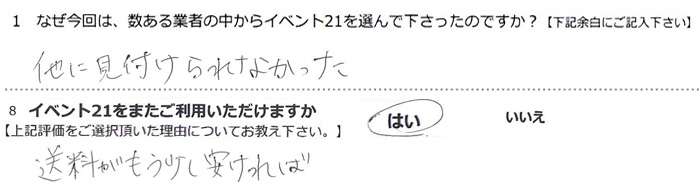 1 なぜ今回は、数ある業者の中からイベント21を選んで下さったのですか？【下記余白にご記入下さい】
他に見付けられなかった
8 イベント21をまたご利用いただけますか はい いいえ
【上記評価をご選択頂いた理由についてお教え下さい。】
送料がもう少し安ければ